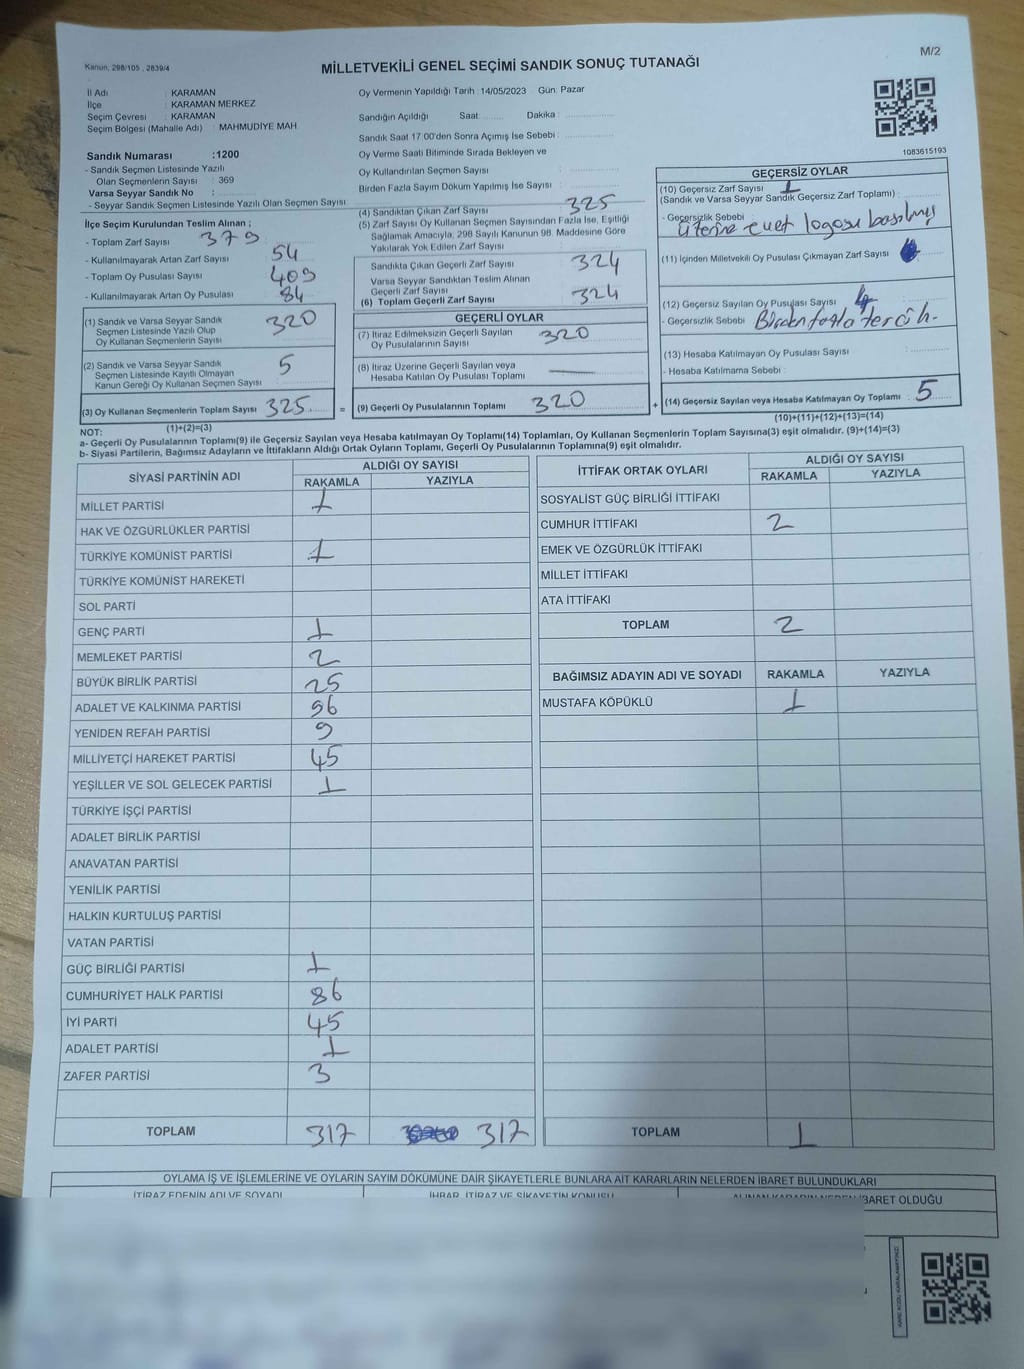 M/2
Kanun, 298/105 , 2839/4
MİLLETVEKİLİ GENEL SEÇİMİ SANDIK SONUÇ TUTANAĞI
İl Adı : KARAMAN
İlçe : KARAMAN MERKEZ
Seçim Çevresi : KARAMAN
Seçim Bölgesi (Mahalle Adı) : MAHMUDİYE MAH
Sandık Numarası :1200
- Sandık Seçmen Listesinde Yazılı
Olan Seçmenlerin Sayısı : 369
Varsa Seyyar Sandık No :
- Seyyar Sandık Seçmen Listesinde Yazılı Olan Seçmen Sayısı
İlçe Seçim Kurulundan Teslim Alınan ;
- Toplam Zarf Sayısı 379
- Kullanılmayarak Artan Zarf Sayısı 54
- Toplam Oy Pusulası Sayısı 409
- Kullanılmayarak Artan Oy Pusulası 84
(1) Sandık ve Varsa Seyyar Sandık
Seçmen Listesinde Yazılı Olup
Oy Kullanan Seçmenlerin Sayısı 320
(2) Sandık ve Varsa Seyyar Sandık
Seçmen Listesinde Kayıtlı Olmayan
Kanun Gereği Oy Kullanan Seçmen Sayısı 5
(3) Oy Kullanan Seçmenlerin Toplam Sayısı 325
Oy Vermenin Yapıldığı Tarih : 14/05/2023 Gün: Pazar
Sandığın Açıldığı Saat: Dakika :
Sandık Saat 17:00'den Sonra Açımış İse Sebebi :
Oy Verme Saati Bitiminde Sırada Bekleyen ve
Oy Kullandırılan Seçmen Sayısı :
Birden Fazla Sayım Döküm Yapılmış İse Sayısı :
(4) Sandıktan Çıkan Zarf Sayısı 325
(5) Zarf Sayısı Oy Kullanan Seçmen Sayısından Fazla İse, Eşitliği
Sağlamak Amacıyla, 298 Sayılı Kanunun 98. Maddesine Göre
Yakılarak Yok Edilen Zarf Sayısı :
Sandıkta Çıkan Geçerli Zarf Sayısı 324
Varsa Seyyar Sandıktan Teslim Alınan
Geçerli Zarf Sayısı
(6) Toplam Geçerli Zarf Sayısı 324
GEÇERLİ OYLAR
(7) İtiraz Edilmeksizin Geçerli Sayılan
Oy Pusulalarının Sayısı 320
(8) İtiraz Üzerine Geçerli Sayılan veya
Hesaba Katılan Oy Pusulası Toplamı
= (9) Geçerli Oy Pusulalarının Toplamı 320
1083615193
GEÇERSİZ OYLAR
(10) Geçersiz Zarf Sayısı 1
(Sandık ve Varsa Seyyar Sandık Geçersiz Zarf Toplamı) :
- Geçersizlik Sebebi
üzerine evet logosu basılmış
(11) İçinden Milletvekili Oy Pusulası Çıkmayan Zarf Sayısı
(12) Geçersiz Sayılan Oy Pusulası Sayısı 4
- Geçersizlik Sebebi Birden fazla tercih.
(13) Hesaba Katılmayan Oy Pusulası Sayısı :
- Hesaba Katılmama Sebebi :
+ (14) Geçersiz Sayılan veya Hesaba Katılmayan Oy Toplamı : 5
NOT: (1)+(2)=(3)
(10)+(11)+(12)+(13)=(14)
a- Geçerli Oy Pusulalarının Toplamı(9) ile Geçersiz Sayılan veya Hesaba katılmayan Oy Toplamı(14) Toplamları, Oy Kullanan Seçmenlerin Toplam Sayısına(3) eşit olmalıdır. (9)+(14)=(3)
b- Siyasi Partilerin, Bağımsız Adayların ve İttifakların Aldığı Ortak Oyların Toplamı, Geçerli Oy Pusulalarının Toplamına(9) eşit olmalıdır.
SİYASİ PARTİNİN ADI ALDIĞI OY SAYISI
RAKAMLA YAZIYLA
MİLLET PARTİSİ 1
HAK VE ÖZGÜRLÜKLER PARTİSİ
TÜRKİYE KOMÜNİST PARTİSİ 1
TÜRKİYE KOMÜNİST HAREKETİ
SOL PARTİ
GENÇ PARTİ 1
MEMLEKET PARTİSİ 2
BÜYÜK BİRLİK PARTİSİ 25
ADALET VE KALKINMA PARTİSİ 96
YENİDEN REFAH PARTİSİ 9
MİLLİYETÇİ HAREKET PARTİSİ 45
YEŞİLLER VE SOL GELECEK PARTİSİ 1
TÜRKİYE İŞÇİ PARTİSİ
ADALET BİRLİK PARTİSİ
ANAVATAN PARTİSİ
YENİLİK PARTİSİ
HALKIN KURTULUŞ PARTİSİ
VATAN PARTİSİ
GÜÇ BİRLİĞİ PARTİSİ 1
CUMHURİYET HALK PARTİSİ 86
İYİ PARTİ 45
ADALET PARTİSİ 1
ZAFER PARTİSİ 3
TOPLAM 317 317
İTTİFAK ORTAK OYLARI ALDIĞI OY SAYISI
RAKAMLA YAZIYLA
SOSYALİST GÜÇ BİRLİĞİ İTTİFAKI
CUMHUR İTTİFAKI 2
EMEK VE ÖZGÜRLÜK İTTİFAKI
MİLLET İTTİFAKI
ATA İTTİFAKI
TOPLAM 2
BAĞIMSIZ ADAYIN ADI VE SOYADI RAKAMLA YAZIYLA
MUSTAFA KÖPÜKLÜ 1
TOPLAM 1
OYLAMA İŞ VE İŞLEMLERİNE VE OYLARIN SAYIM DÖKÜMÜNE DAİR ŞİKAYETLERLE BUNLARA AİT KARARLARIN NELERDEN İBARET BULUNDUKLARI
İTİRAZ EDENİN ADI VE SOYADI İHBAR, İTİRAZ VE ŞİKAYETİN KONUSU ALINAN KARARIN NEDEN İBARET OLDUĞU